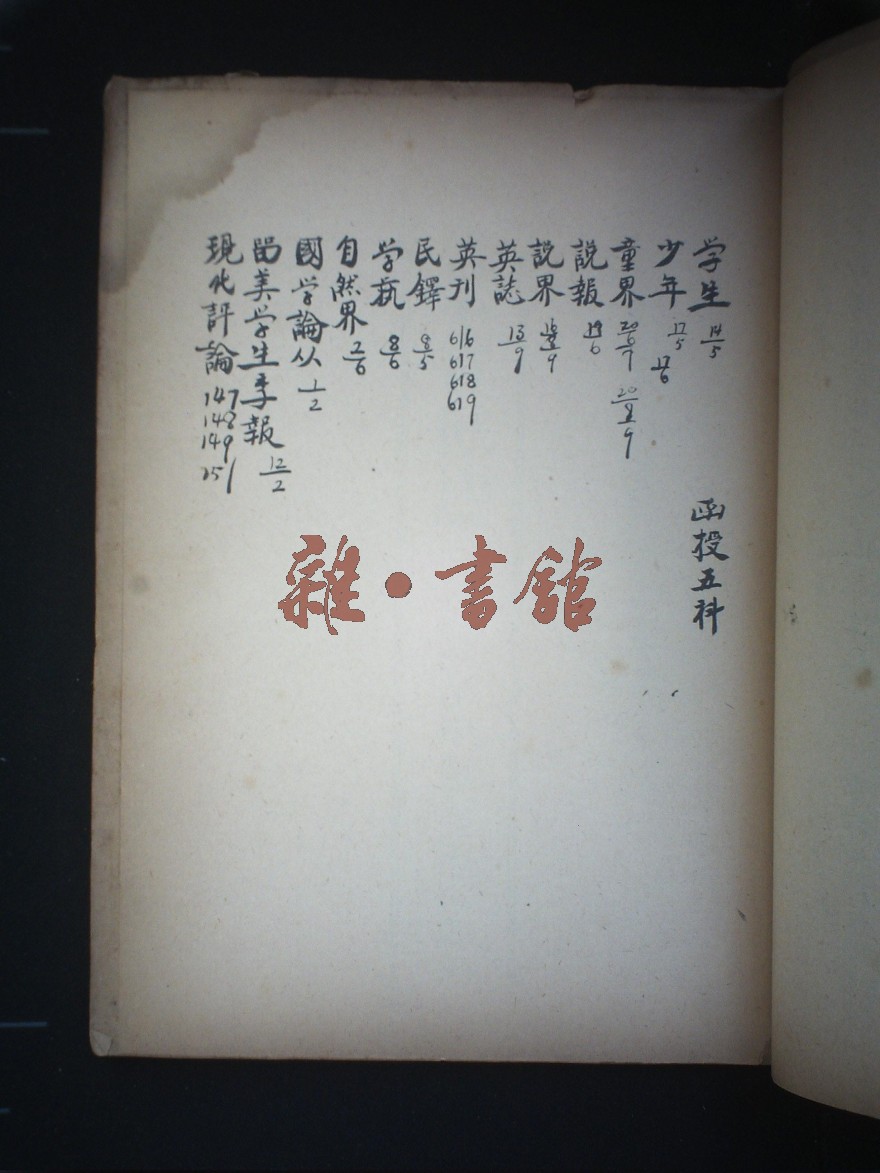 学生 14/5
少年 17/5 17/6
童界 20/6/7 20/8/9
説報 19/6
説界 16/8/9
英誌 13/9
英刊 616 617 618 619
民鐸 9/5
学藝 8/6
自然界 2/6
國学論从 1/2
留美学生季報 12/2
現代評論 147 148 149 151
函授五科
雜·書館